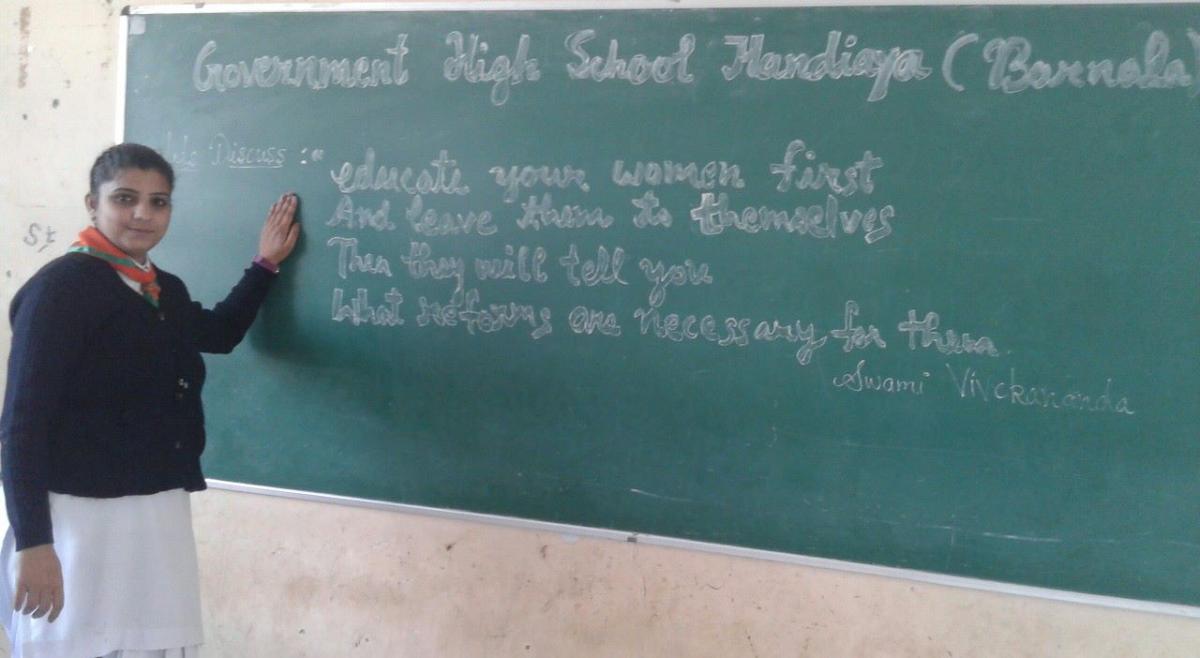 Government High School Handiaya (Barnala)
Discuss :"
educate your women first
And leave them to themselves
Then they will tell you
What reforms are necessary for them
Swami Vivekananda
St